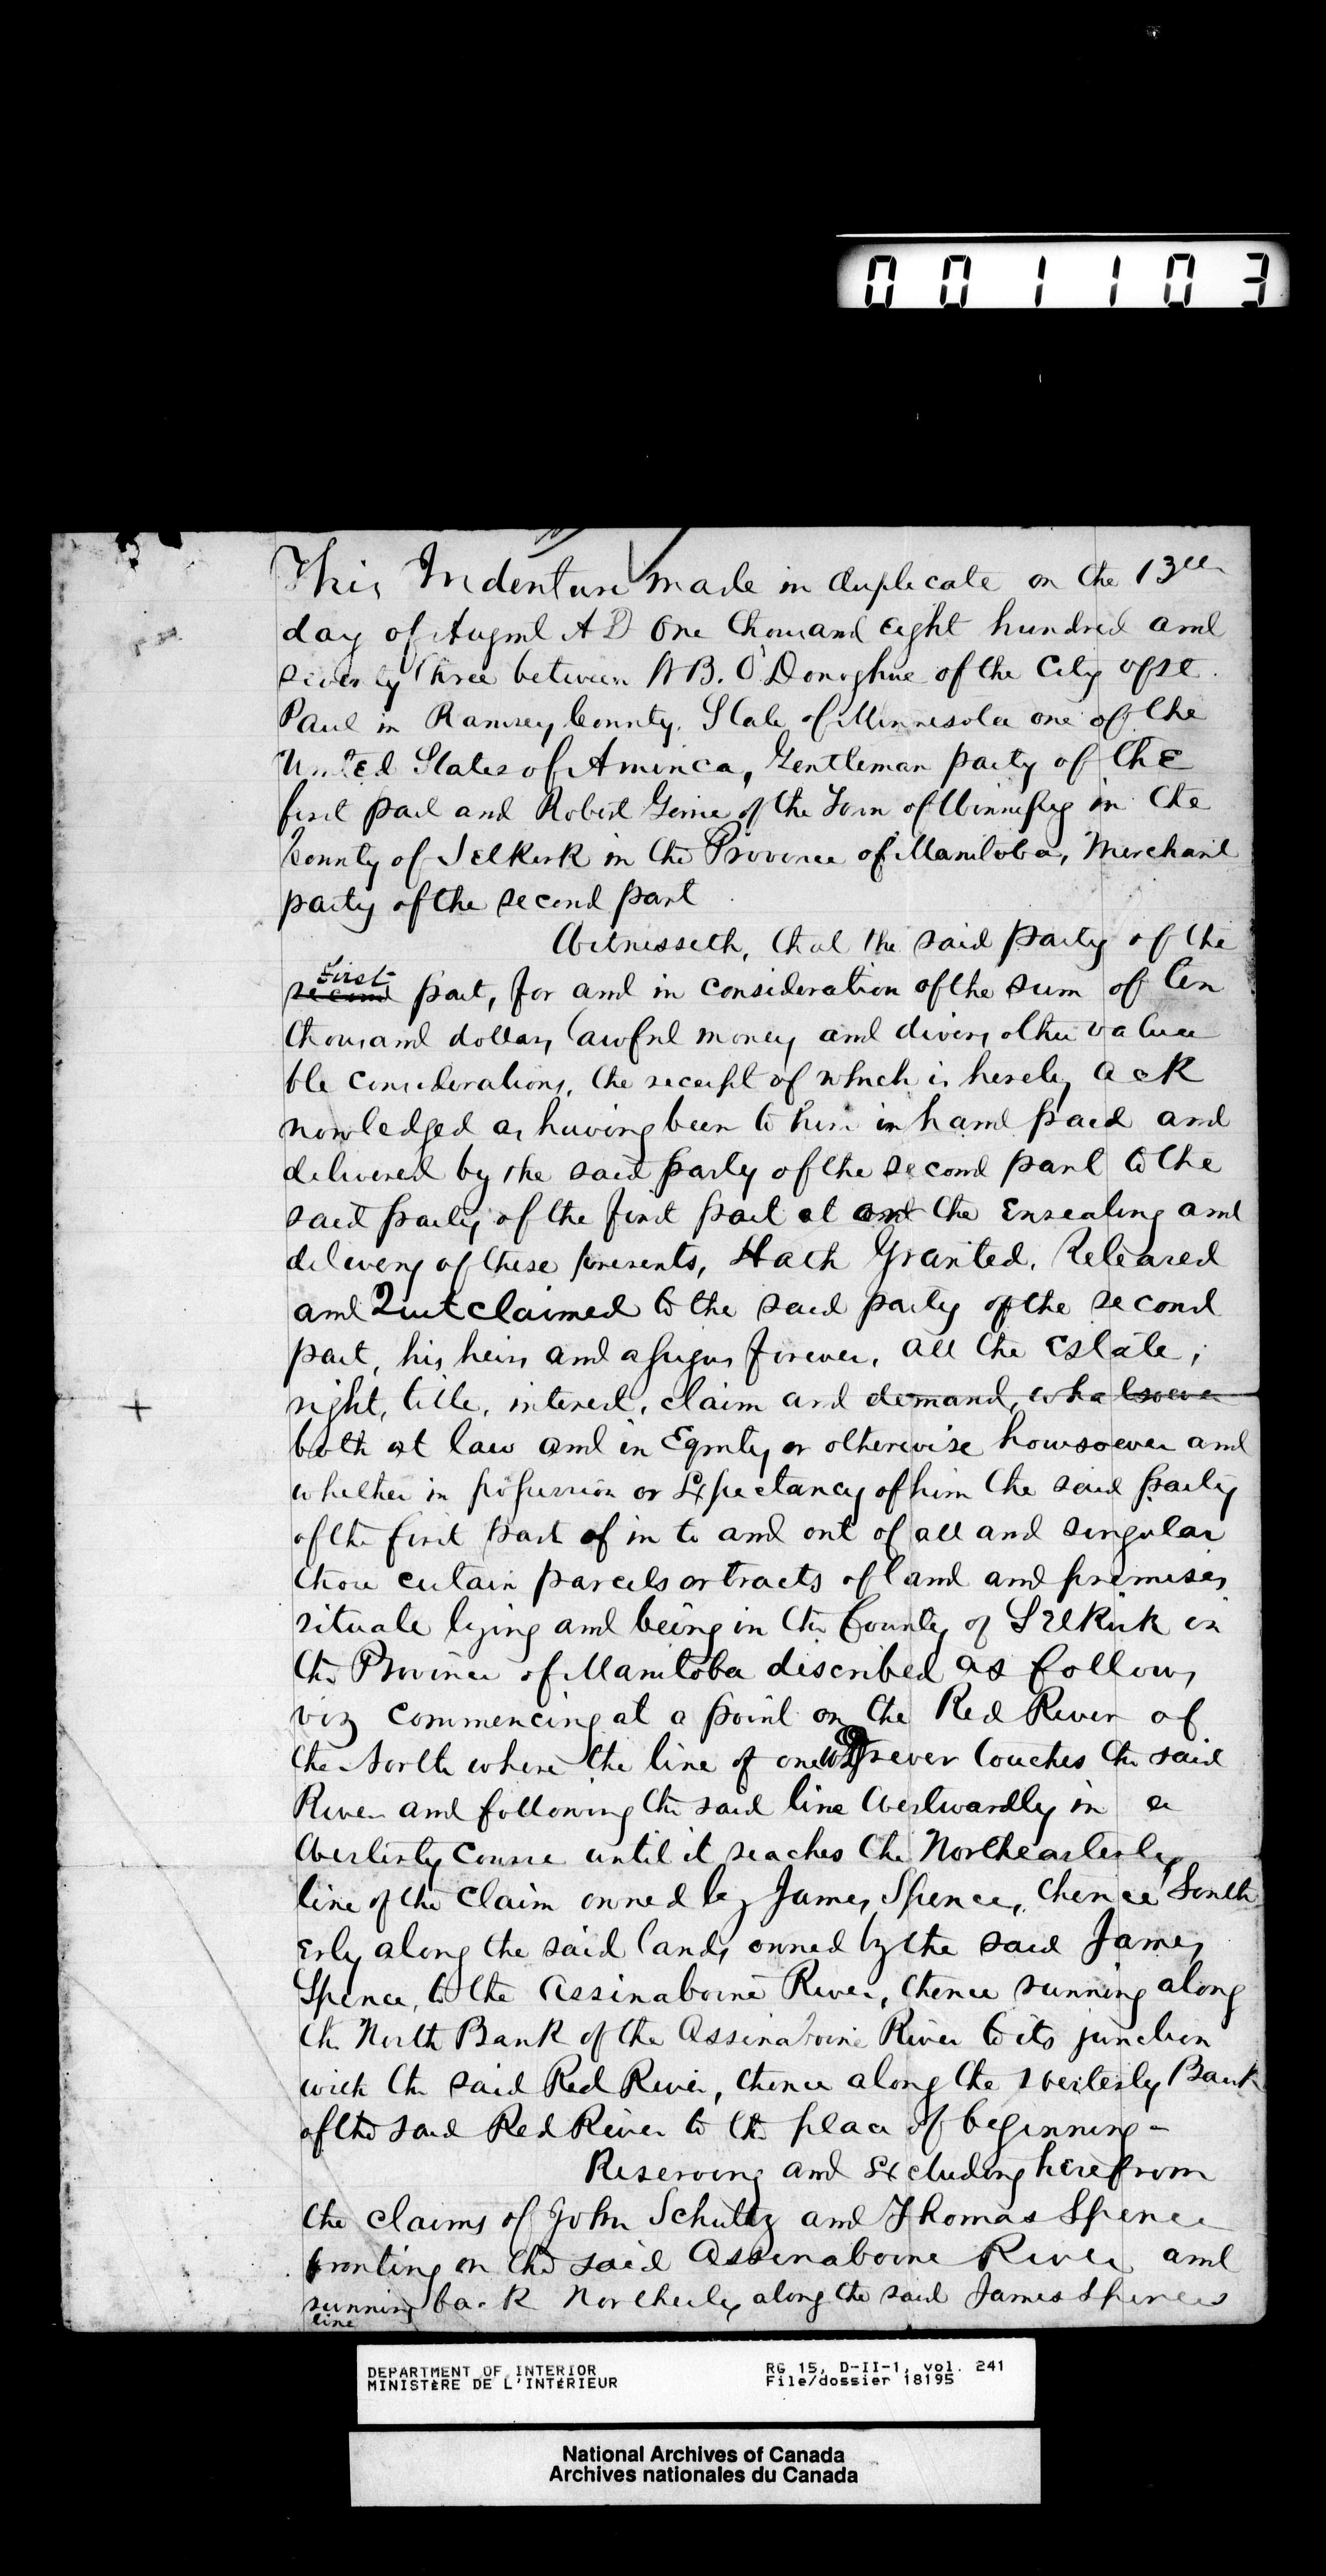 001103
This Indenture made in duplicate on the 13th
day of August A D One thousand eight hundred and
seventy three between W B. O'Donoghue of the City of St.
Paul in Ramsey County, State of Minnesota one of the
United States of America, Gentleman party of the
first part and Robert Gerrie of the Town of Winnipeg in the
County of Selkirk in the Province of Manitoba, Merchant
party of the second part
Witnesseth, that the said party of the
first
second part, for and in consideration of the sum of ten
thousand dollars lawful money and divers other valua
ble considerations, the receipt of which is hereby ack
nowledged as having been to him in hand paid and
delivered by the said party of the second part to the
said party of the first part at and the Ensealing and
delivery of these presents, Hath Granted, Released
and Quit claimed to the said party of the second
part, his heirs and assigns forever, all the Estate,
right, title, interest, claim and demand, whatsoever
both at law and in Equity or otherwise howsoever and
whether in possession or Expectancy of him the said party
of the first part of in to and out of all and singular
those certain parcels or tracts of land and premises
situate lying and being in the County of Selkirk in
the Province of Manitoba discribed as follows
viz commencing at a point on the Red River of
the North where the line of one touches the said
River and following the said line Westwardly in a
Westerly course until it reaches the Northeasterly
line of the claim owned by James Spence, thence South
Erly along the said lands owned by the said James
Spence, to the Assinaboine River, thence running along
the North Bank of the Assinaboine River to its junction
with the said Red River, thence along the westerly Bank
of the said Red River to the place of beginning -
Reserving and Excluding herefrom
the claims of John Schultz and Thomas Spence
fronting on the said Assinaboine River and
running back Northerly along the said James Spences
line
DEPARTMENT OF INTERIOR RG 15, D-II-1, vol. 241
MINISTÈRE DE L'INTÉRIEUR File/dossier 18195
National Archives of Canada
Archives nationales du Canada